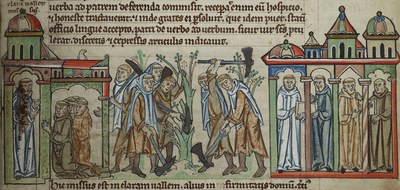 clara uallem
uerba ad patrem deferenda commisit. enim eum hospicio.
& honeste & inde grates ei psoluit. que idem puer. statī
officio lingue accepto. patri de uerbo ad uerbum. sicut uir
lerat. disertis & expressis articulis indicauit.
Hic missus est in claram uallem. alius in firmitatis domū.